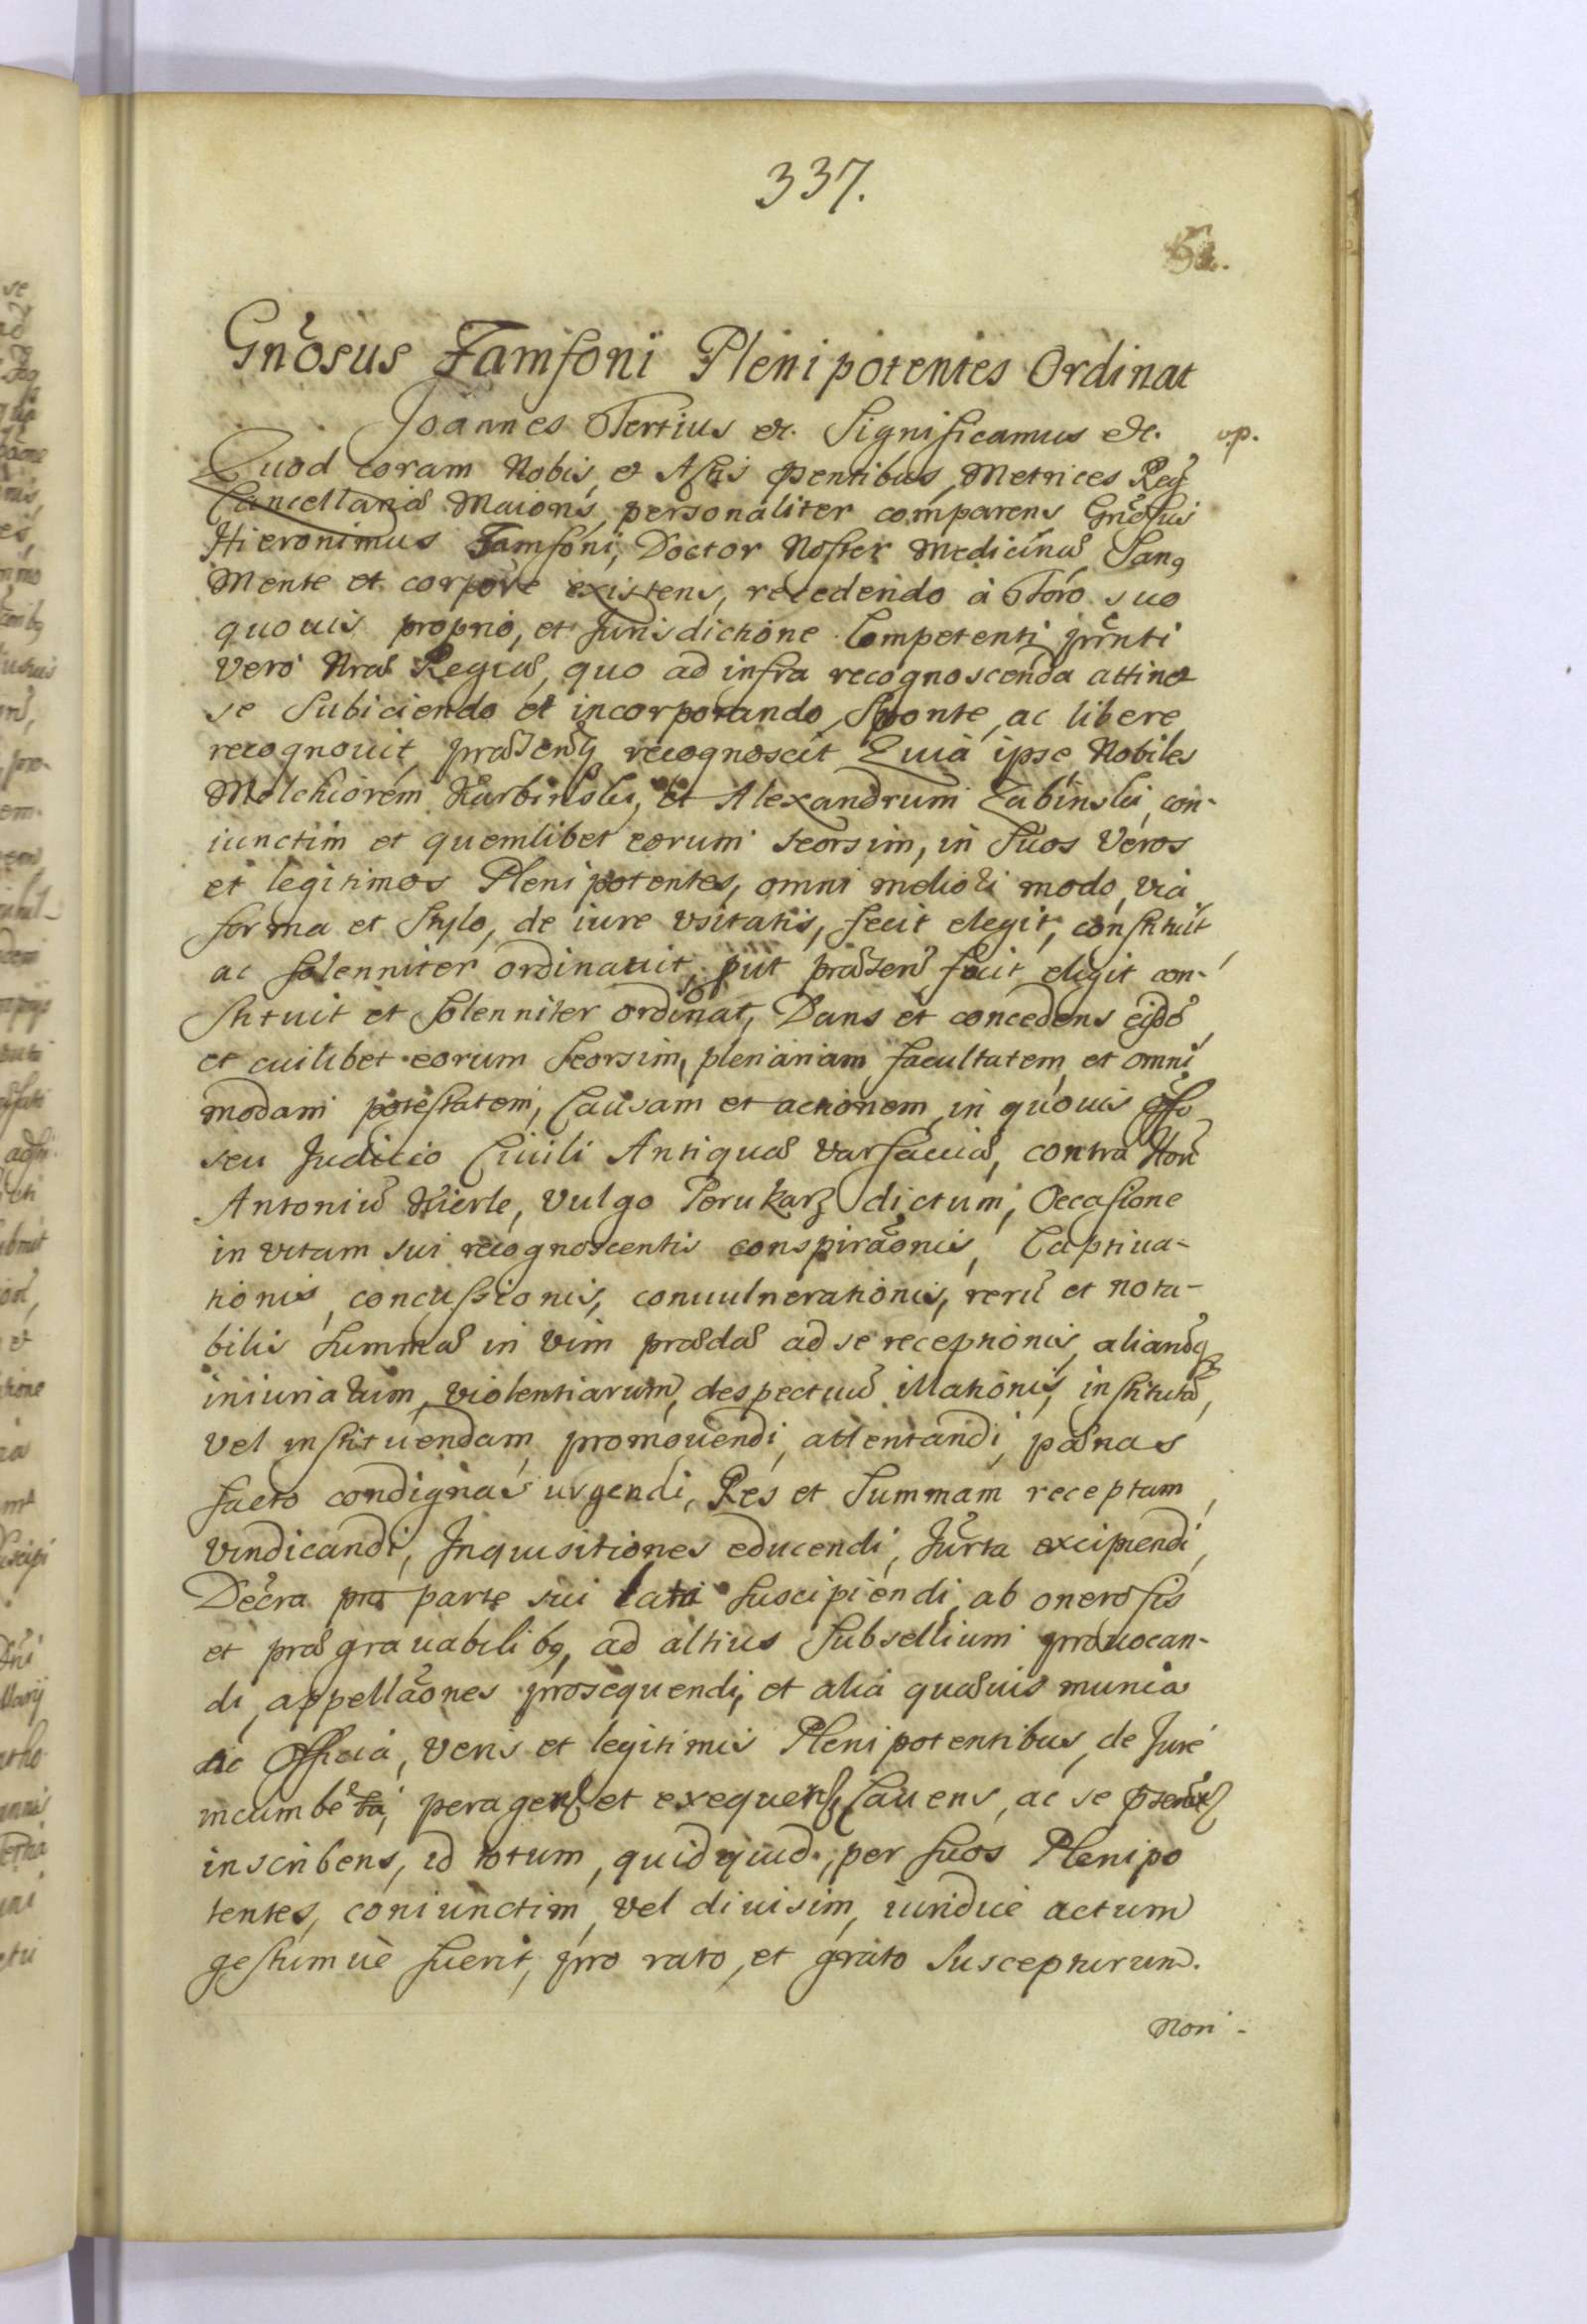 337.
Gnõsus Zamfoni Plenipotentes Ordinat
Joannes Tertius etc. Significamus etc. v.p.
Quod coram Nobis, et Actis pntibus, Metrices Reg̃
Cancellariæ Maioris, personaliter comparens Gnõsus
Hieronimus Zamfoni, Doctor Noster Medicinæ, Sang
Mente et corpore existens, recedendo à Foro suo
quouis proprio, et Jurisdictione Competenti prñti
vero Nræ Regiæ, quo ad infra recognoscenda attinet
se Subiiciendo et incorporando, Sponte, ac libere
recognouit, præsentq recognoscit Quià ipse Nobiles
Melchiorem Karbinski, et Alexandrum Zabinski, con-
iunctim et quemlibet eorum seorsim, in Suos Veros
et legitimos Plenipotentes, omni meliori modo, vià
forma et Stylo, de iure vsitatis, fecit elegit, constituit
ac solenniter ordinauit, put præsent facit eligit con-
stituit et Solenniter ordinat, Dans et concedens eisdẽ
et cuilibet eorum Seorsim, plenariam facultatem, et omni
modam potestatem, Causam et actionem, in quouis Offo
seu Judicio Ciuili Antiquæ Varsauiæ, contra Hon̄
Antoniũ Kierle, vulgo Perukarz dictum, Occasione
in vitam sui recognoscentis conspirãonis, Captiua-
tionis, concussionis, conuulnerationis, rerũ et nota-
bilis Summæ in vim prædæ ad se receptionis, aliarũq
iniuriarum, violentiarum, despectuũ illationis, institutã,
vel instituendam, promouendi, attentandi, pænas
facto condignas urgendi, Res et Summam receptam
vindicandi, Inquisitiones educendi, Jurta excipiendi,
Decra pro parte sui lata Suscipiendi, ab onerosis
et prægrauabilibq, ad altius Subsellium prouocan-
di, appellãones prosequendi, et alia quæuis munia
ac Officia, veris et legitimis Plenipotentibus, de Jure
incumbẽta, peragen et exequen, Cauens, ac se
inscribens, id totum, quidquid, per Suos Plenipo
tentes, coniunctim, vel diuisim, iuridice actum
gestumuè fuerit, pro rato, et grato Suscepturum.
Non-